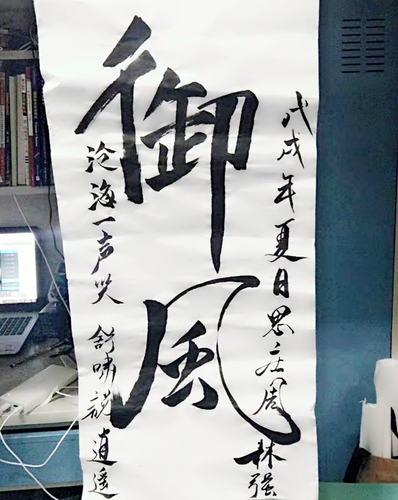 戊戌年夏日思庄周
林强
御風
沧海一声笑 舒啸说逍遥